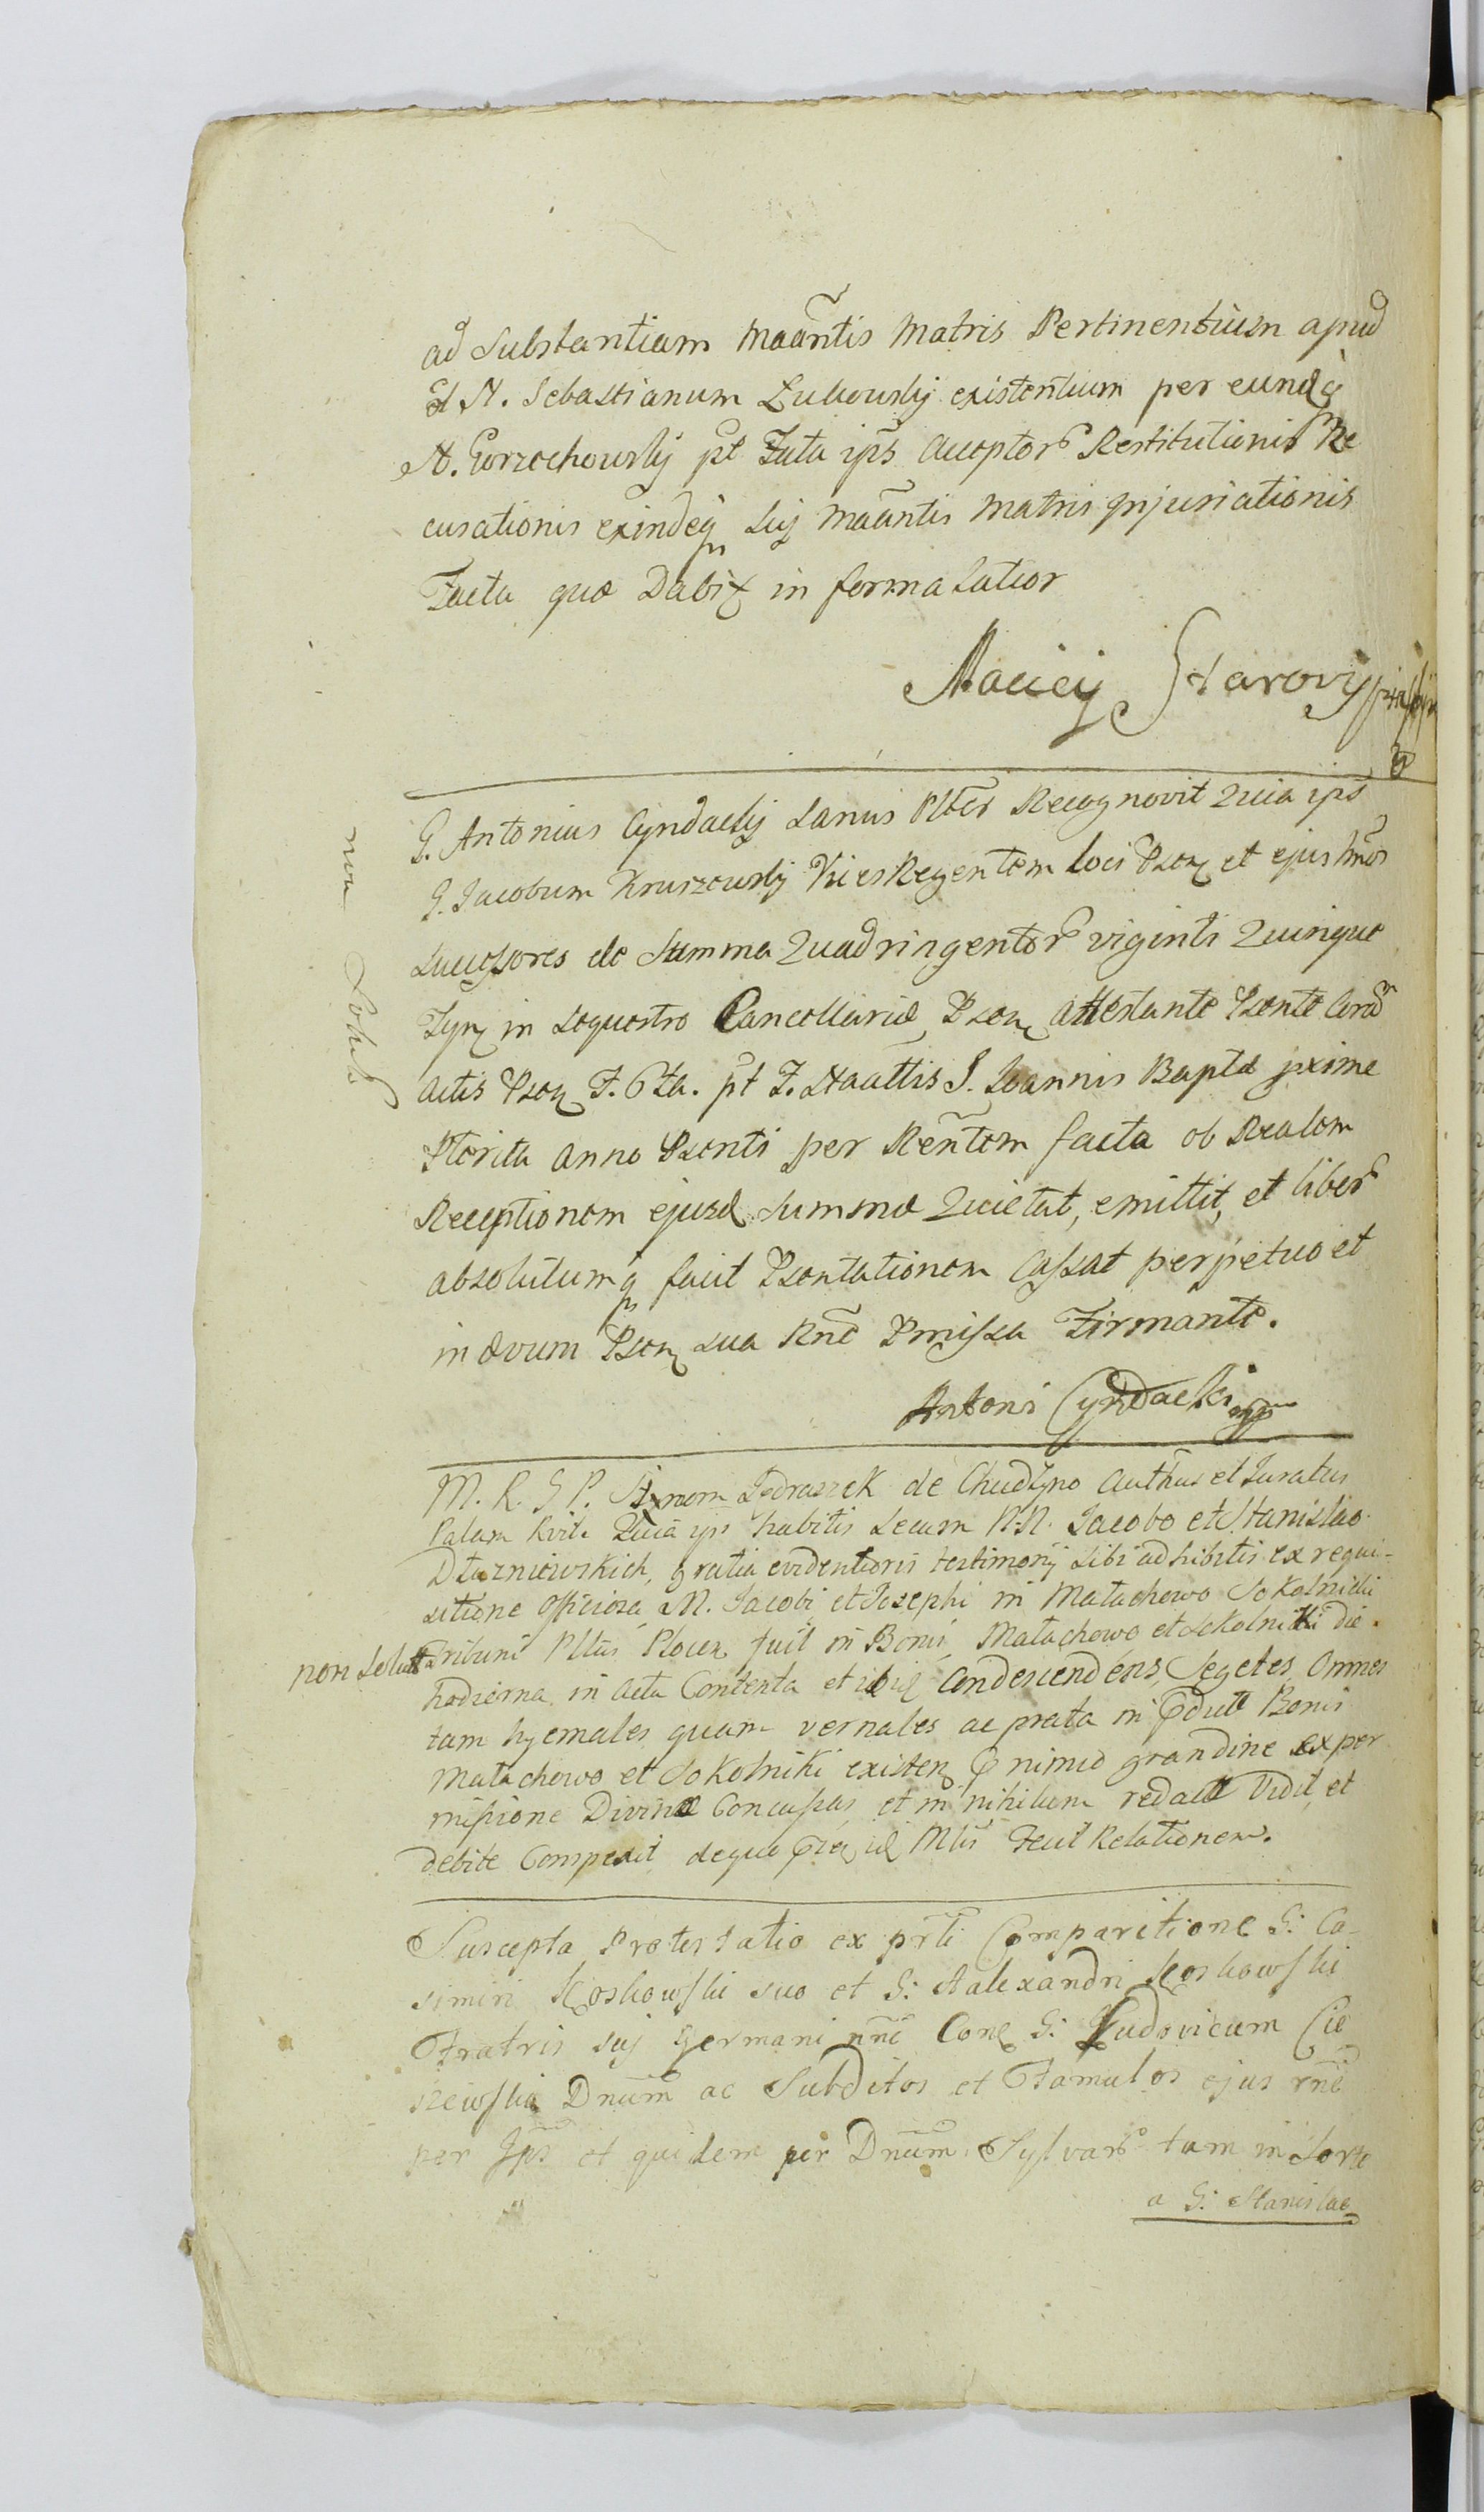 ad Substantiam Maantis Matris Pertinentium apud
et N. Sebastianum Zukowsky existentium per eundq
N. Gorzechowsky pt Fata ips Acceptor Restitutionis Re
cusationis exindeq Suy Maantis Matris Injuriationis
Facta quæ Dabit in forma Latior
Maciey Starovy
G. Antonius Cyndacky Sanus Plter Recognovit Quia ips
G. Jacobum Kruszewsky Vices Regentem Loci Psen et ejus hmoi
Sucessores de Summa Quadringentor viginti Quinque
Fyn in Sequestro Cancellariæ Psen attestante Psente Cora
actis Psen F. 6 ta. pt F. Naattis S. Joannis Baptæ pxime
Pterita anno Psenti per Rentem facta ob Realem
Receptionem ejusd Summæ Quietat, emittit, et liber
absolutumq facit Psentationem Cassat perpetuo et
in ævum Psen sua Rne Pmissa Firmante.
Antoni Cyndacki mp
non Solut
M. R. G P. Szymon Jędraszek de Chudzyno Authus et Juratus
Palam Rvit. Quia ips habitis Secum N.N. Jacobo et Stanislao
Dłuzniewskich, gratia evidentioris testimony sibi adhibitis ex requi-
sitione Officiosa M. Jacobi et Josephi in Małachowo Sokolnicki
non Soluta
Tribuni Pltus Plocen fuit in Bonis Małachowo et Sokolniki die
hodierna in Acta Contenta et ibiq Condescendens, Segetes Omnes
tam hyemales quam vernales ac prata in pdute Bonis
Małachowo et Sokolniki existen p nimio grandine ex per
missione Divina Concussas et in nihilum redacte Vidit, et
debite Comperit deque preq id Mtis Fecit Relationem.
Suscepta Protestatio ex prti Comparitione G: Ca-
simiri Koskowski suo et G: Alexandri Koskowski
Fratris suy Germani nne Conq G: Ludovicum Cie
szewski Dnum ac Subditos et Famulos ejus rne
per Ips et quidem per Dnum Sylvar tam in Sorte
a G: Stanislao